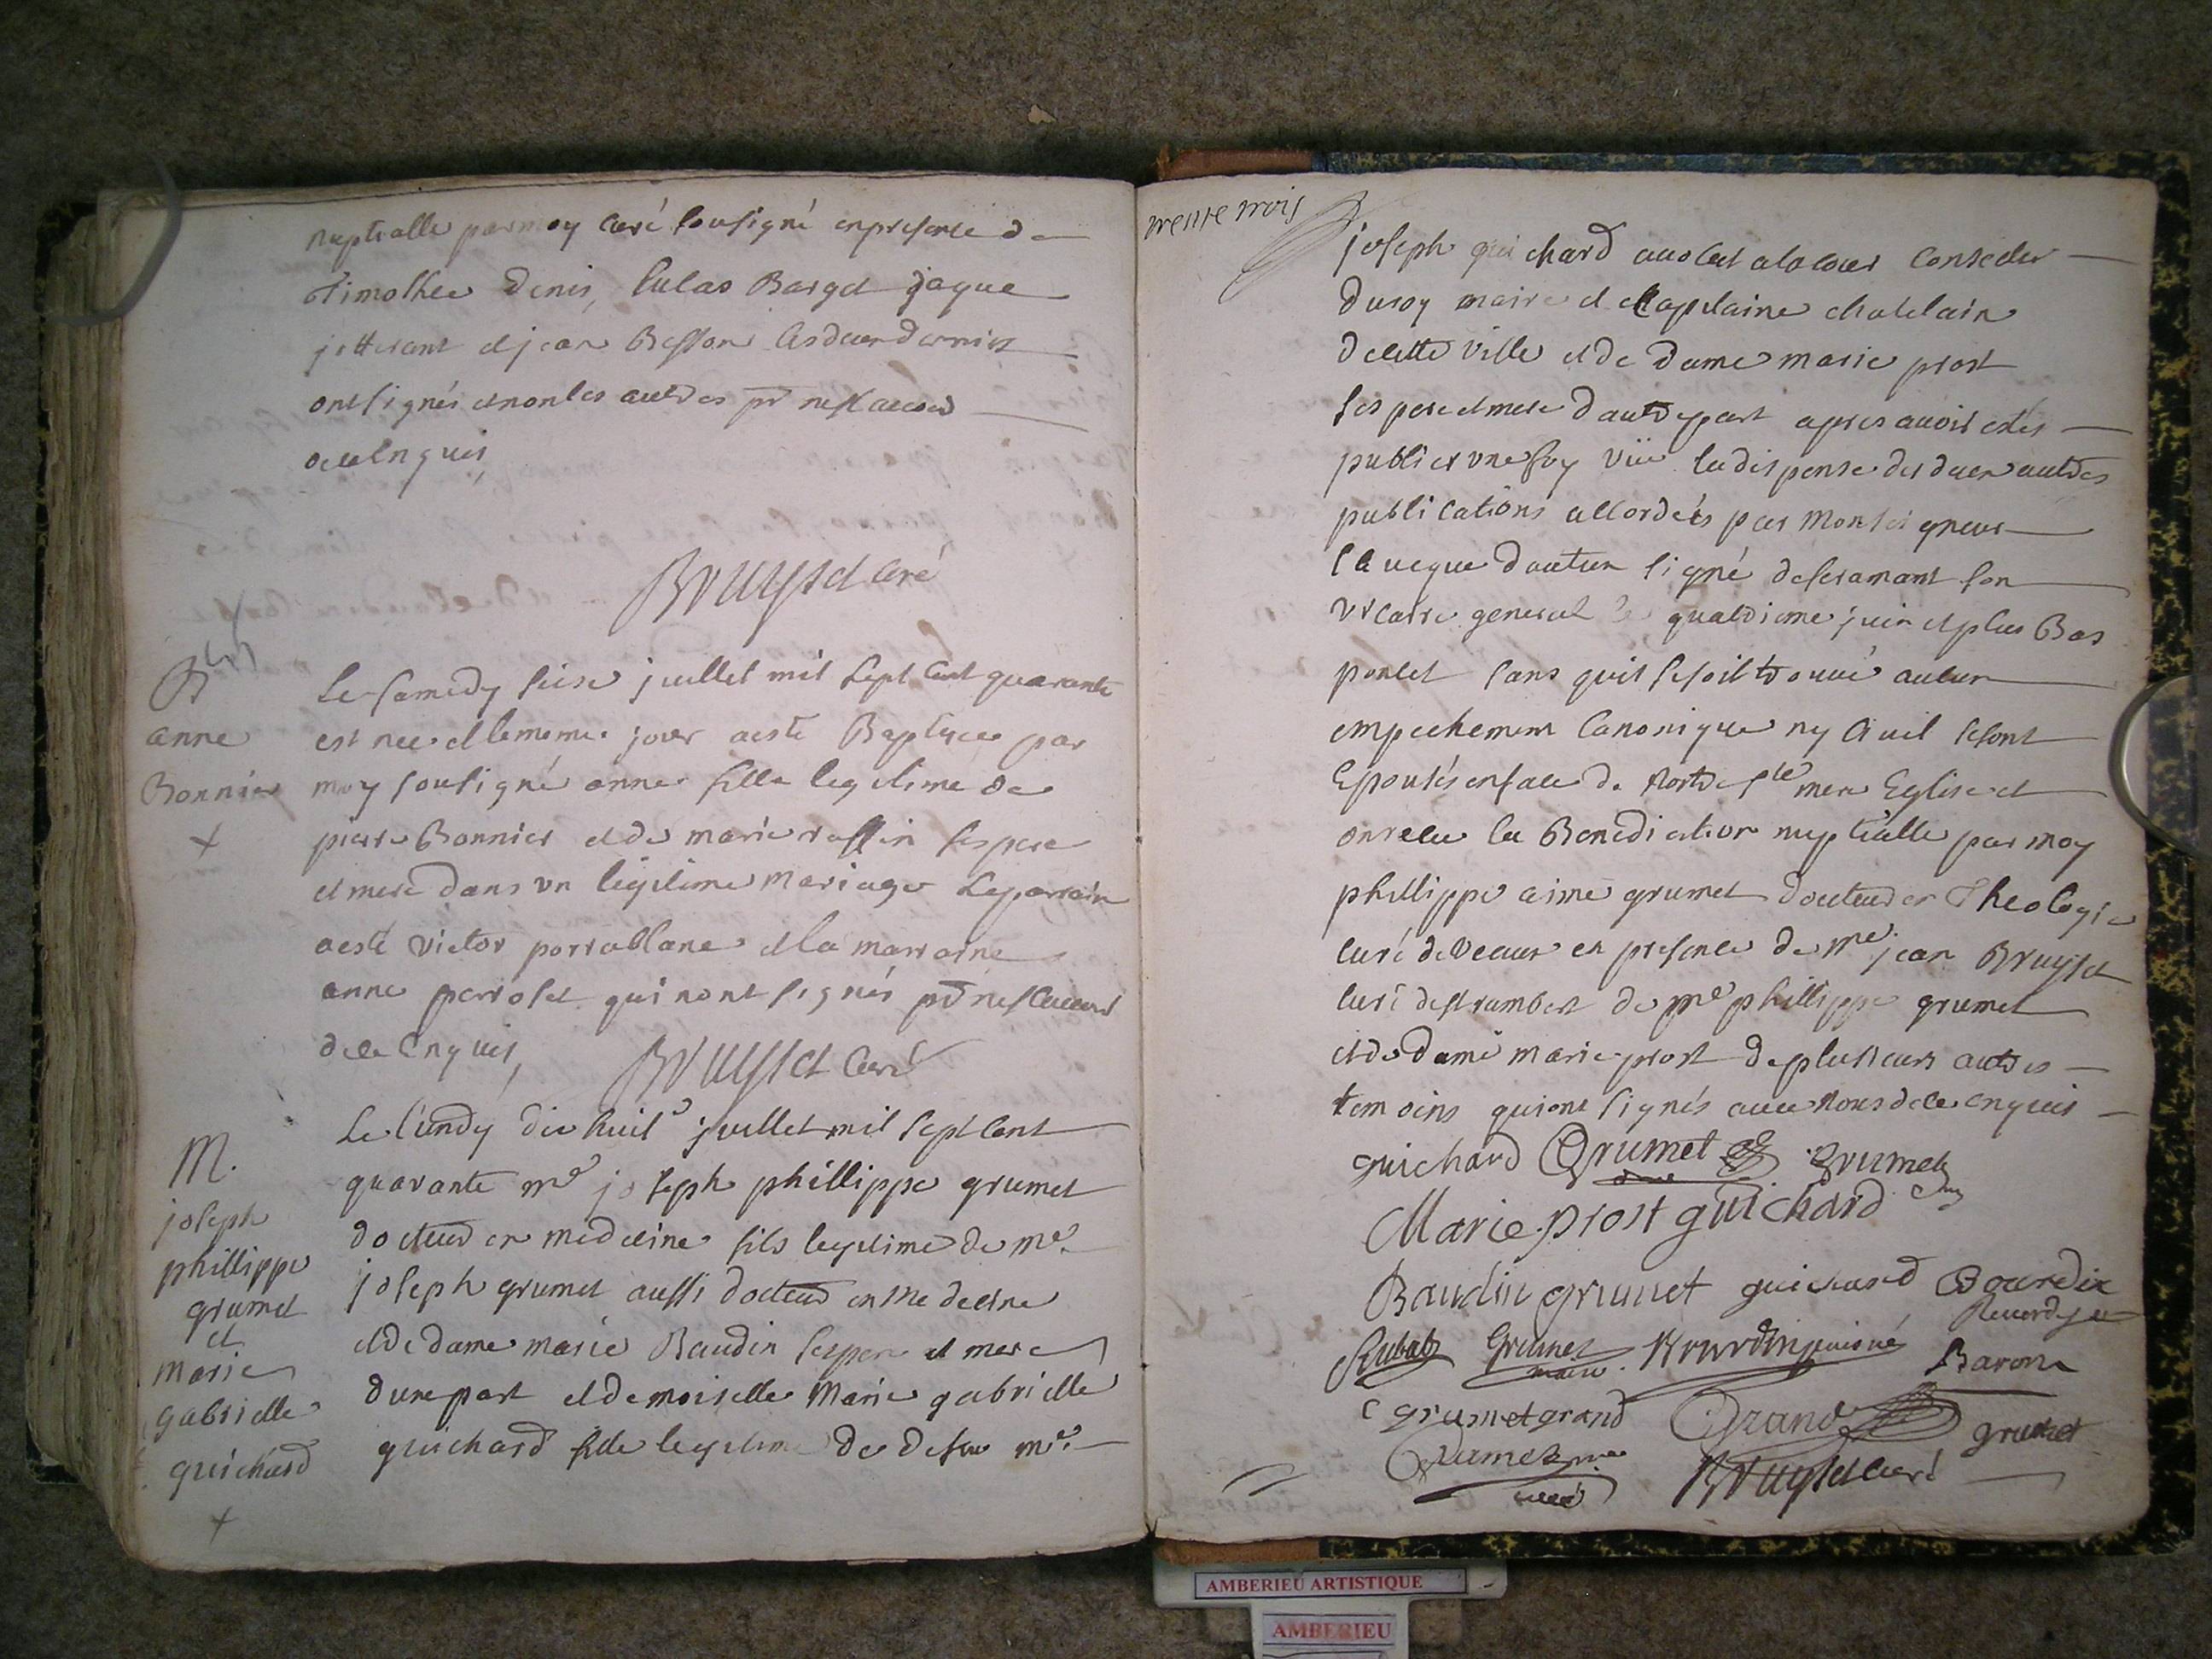 nuptialle par moy curé sousigné en presence de
Timothee Denis, lucas Barget jaque
jotterant et jean Besson les deux derniers
ont signés et non les autres pr ne scavoir
de ce Enquis,
Bruyset curé
B
anne
Bonnier
+
Le samedy seise juillet mil sept cent quarante
est nee et le meme jour a esté Baptisee par
moy sousigné anne fille legitime de
pierre Bonnier et de marie ruffin ses pere
et mere dans un legitime mariage le parrain
a esté victor porrablanc et la marraine
anne perroset qui nont signés pr ne scavoir
de ce Enquis,
Bruyset Curé
M.
joseph
phillippe
grumet
et
marie
gabrielle
guichard
+
Le lundy dix huit juillet mil sept cent
quarante me joseph phillippe grumet
docteur en medecine fils legitime de me
joseph grumet aussi docteur en medecine
et de dame marie Baudin ses pere et mere
dune part et demoiselle Marie gabrielle
guichard fille legitime de defeu me
trente trois
joseph guichard avocat a la cour conseiller
du roy maire et capitaine chatelain
de cette ville et de dame marie prost
ses pere et mere dautre part apres avoir estés
publies une foy vüe la dispense des deux autres
publications accordées par Monseigneur
leveque dautun signé deseramant son
vicaire general le quatrieme juin et plus Bas
poncet sans quil se soit trouvé aucun
empechement canonique ny civil se sont
Epousés en face de notre ste mere Eglise et
on receu la Benediction nuptialle par moy
phillippe aimé grumet docteur en Theologie
curé de veaux en presence de me jean Bruyset
curé de st rambert de me phillippe grumet
et de dame marie prost de plusieurs autres
temoins qui ont signés avec nous de ce enquis
guichard Grumet grumet
Marie prost guichard
Baudin grumet guichard Bourdin
Rubat Grumet Bourdin puisné
Baron
grumet grand Grand grumet
Grumet
curé
Bruyset curé
AMBERIEU ARTISTIQUE
AMBERIEU